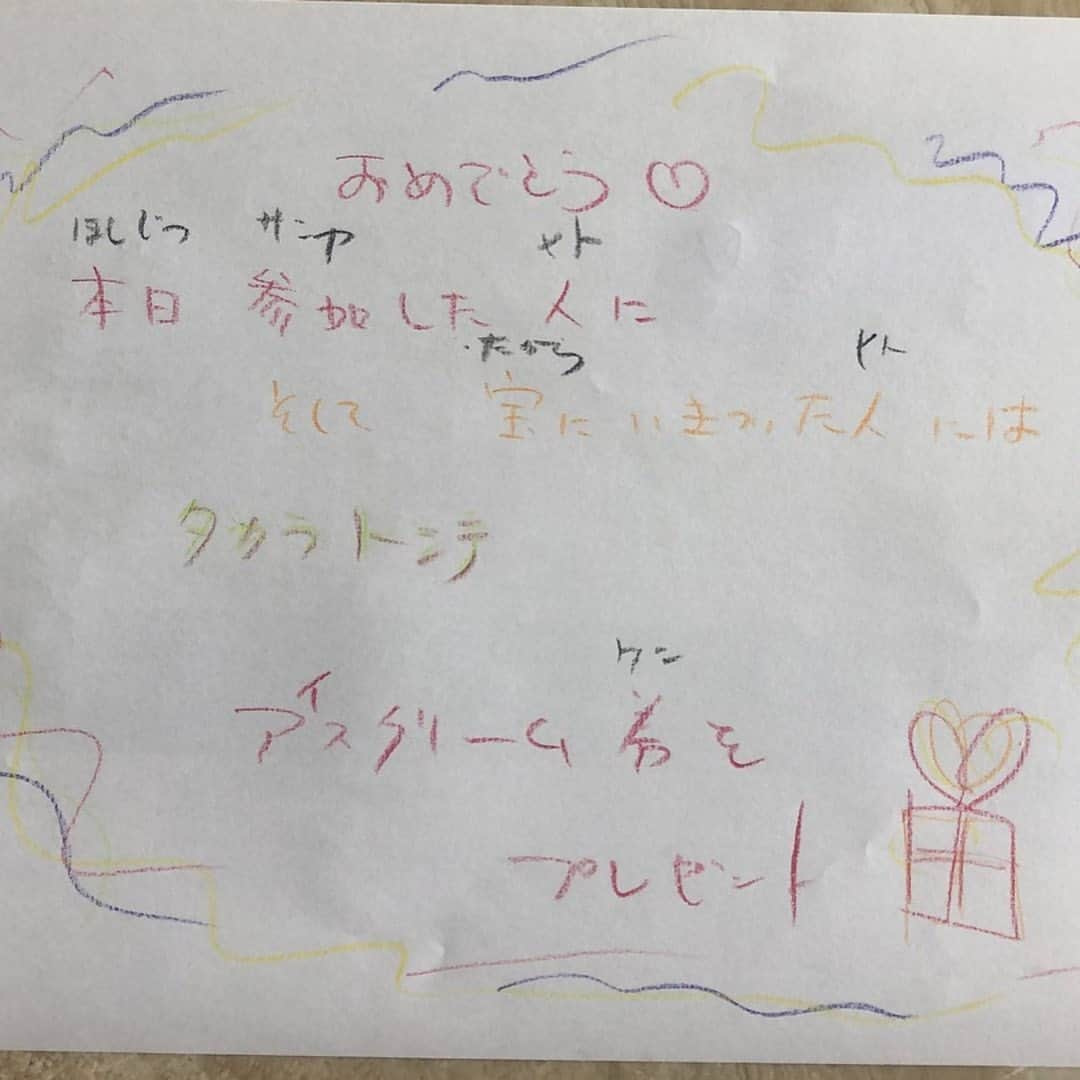 おめでとう♡
ほしじつ サンア ヒト
本日 参加した 人に
たから ヒト
そして 宝にいきついた人には
タカラトンテ
ケン
アイスクリーム 券を
プレゼント